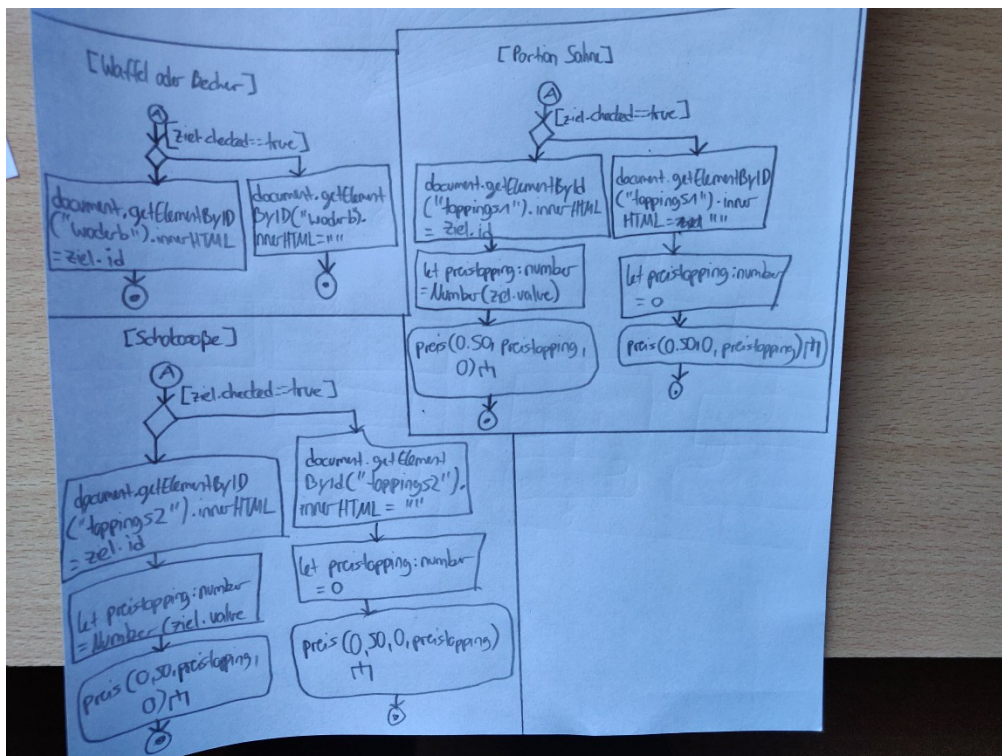 [Waffel oder Becher]
A
[ziel.checked==true]
document.getElementByID
("woderb").innerHTML
=ziel.id
document.getElement
ByID("woderb").
innerHTML=""
[Portion Sahne]
A
[ziel.checked==true]
document.getElementById
("toppings1").innerHTML
= ziel.id
let preistopping:number
=Number(ziel.value)
preis(0.50, preistopping,
0)
document.getElementByID
("toppings1").inner
HTML= ""
let preistopping:number
= 0
preis(0.50,0, preistopping)
[Schokosoße]
A
[ziel.checked==true]
document.getElementByID
("toppings2").innerHTML
= ziel.id
let preistopping:number
=Number(ziel.value
preis(0,50,preistopping,
0)
document.getElement
ById("toppings2").
innerHTML = ""
let preistopping:number
= 0
preis(0,50,0,preistopping)